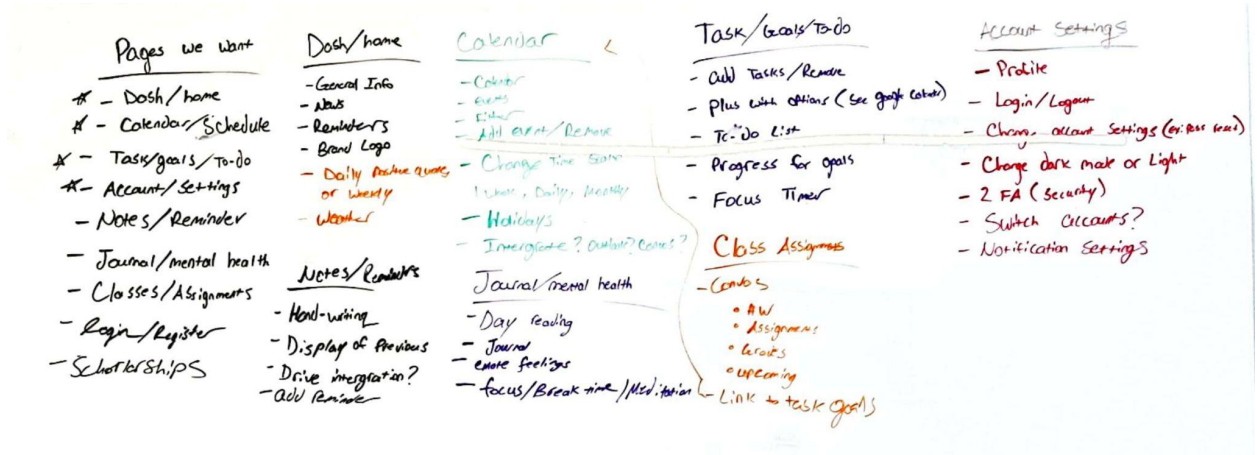 Pages we want
* - Dash/home
* - Calendar/Schedule
* - Tasks/goals/To-do
* - Account/Settings
- Notes/Reminder
- Journal/mental health
- Classes/Assignments
- Login/Register
- Scholarships
Dash/home
- General Info
- News
- Reminders
- Brand Logo
- Daily Positive quotes,
or weekly
- Weather
Notes/Reminders
- Hand-writing
- Display of Previous
- Drive intergration?
- add Reminder
Calendar
- Calendar
- Events
- Filter
- Add event/Remove
- Change Time
Daily, Monthly
- Holidays
- Intergrate? Outlook? Canvas?
Journal/mental health
- Day reading
- Journal
- emote feelings
- focus/Break time/Meditation
Task/Goals/To-do
- add Tasks/Remove
- Plus with options (see google calendar)
- To-do List
- Progress for goals
- Focus Timer
Class Assignments
- Canvas
• HW
• Assignments
• Grades
• upcoming
- Link to task goals
Account Settings
- Profile
- Login/Logout
- Change account settings
- Change dark mode or Light
- 2 FA (Security)
- Switch accounts?
- Notification Settings